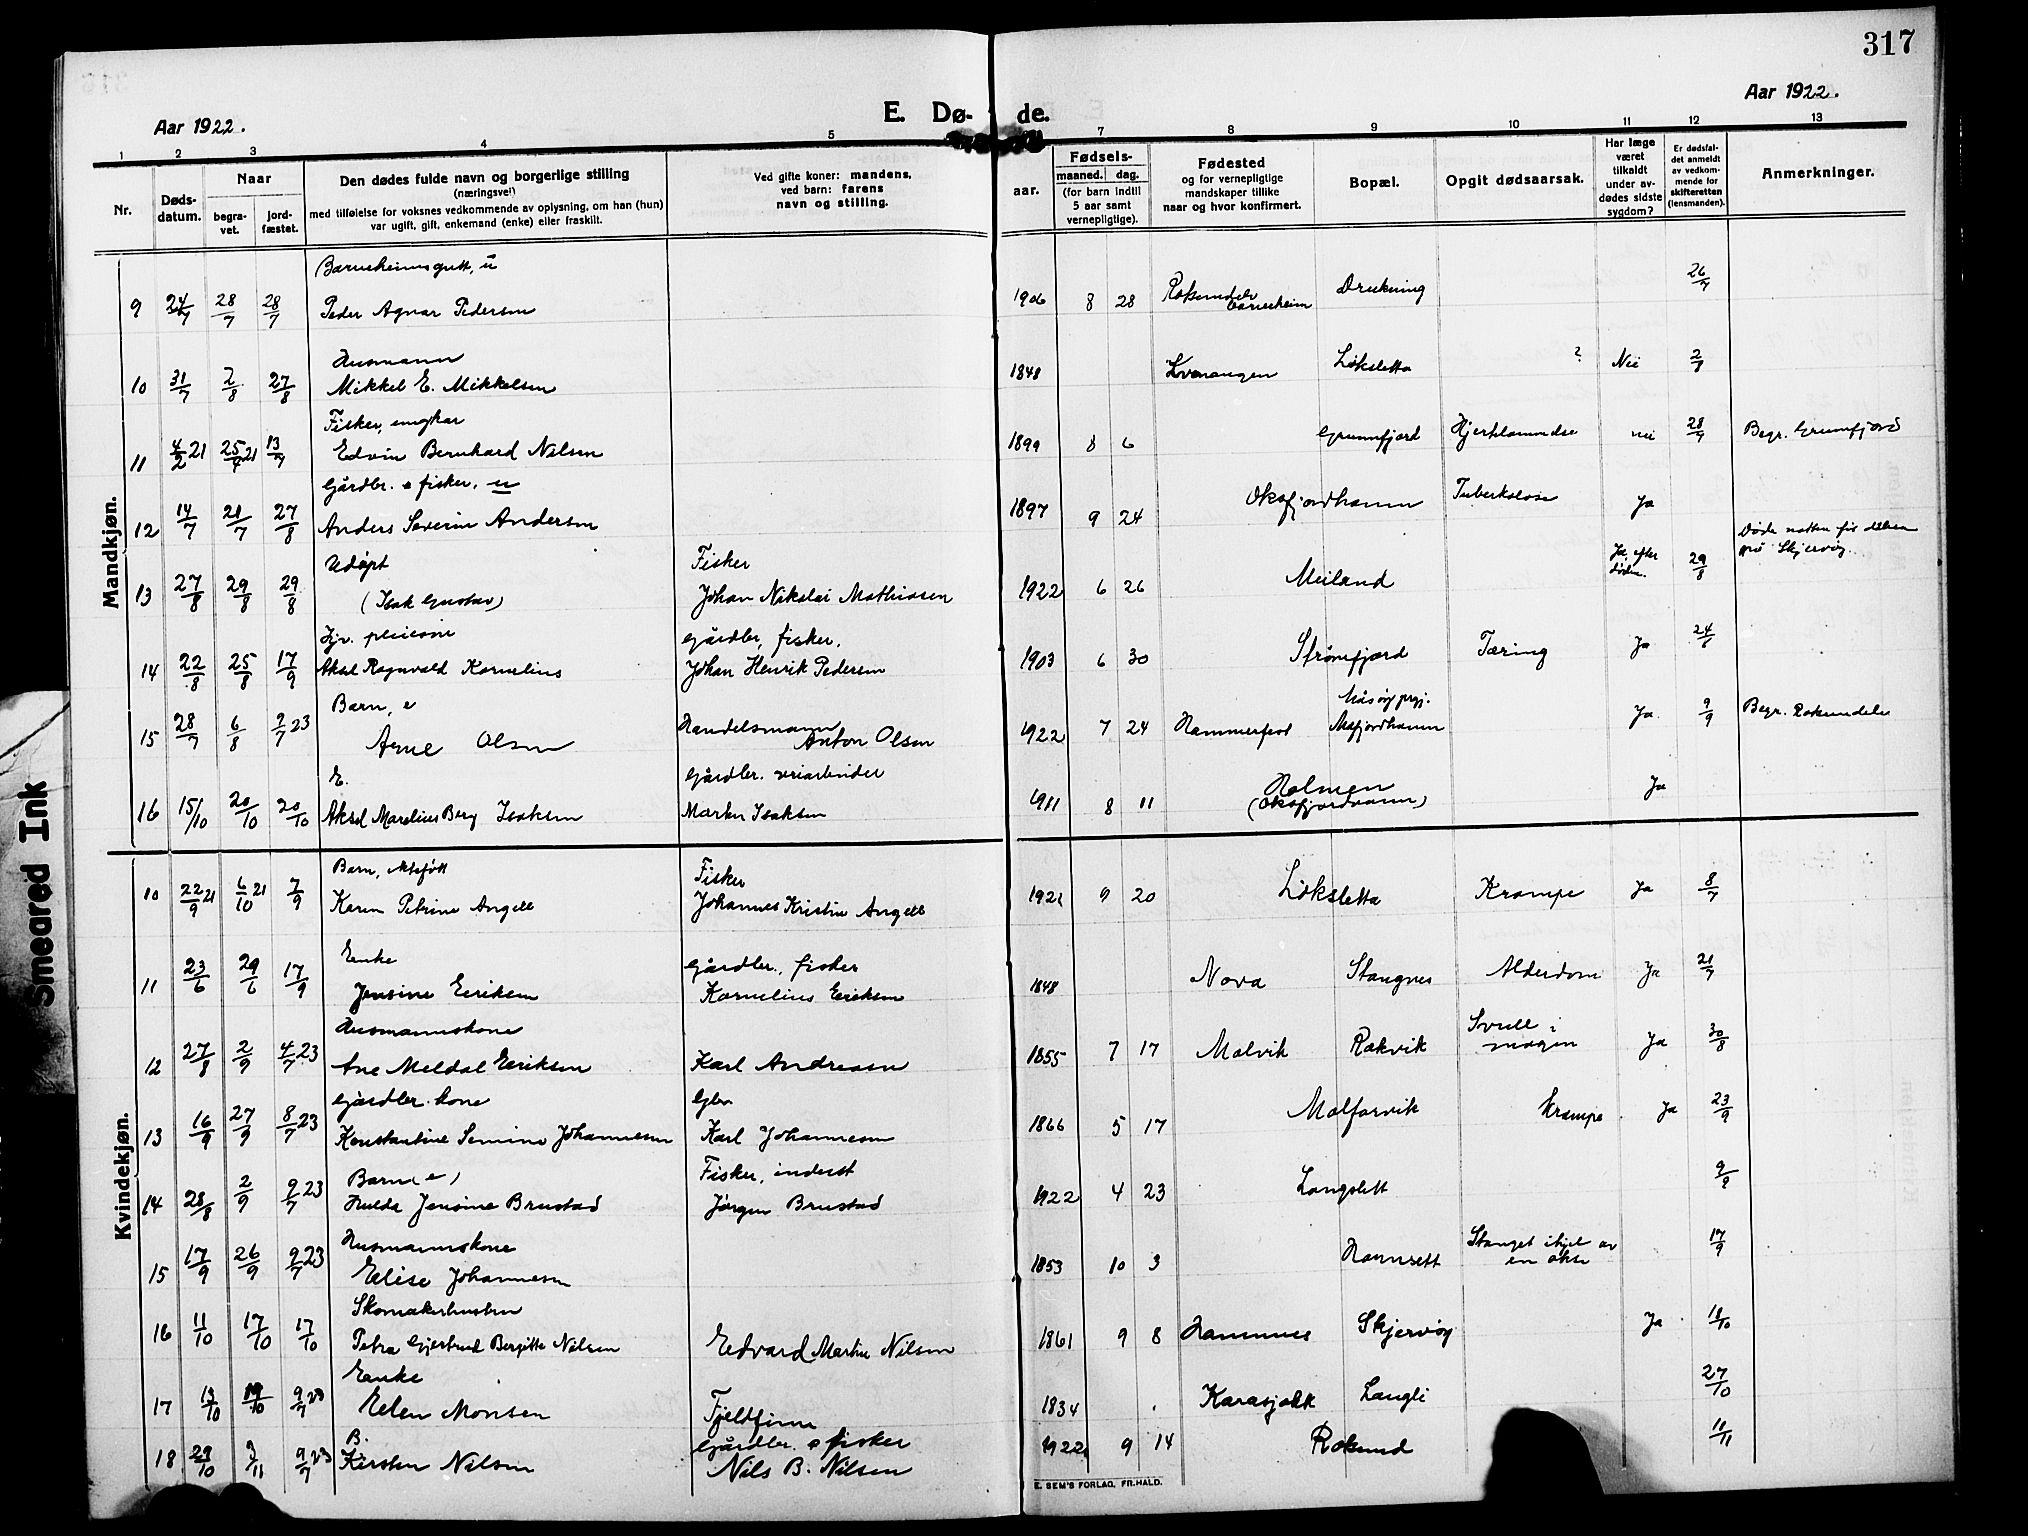 317
Aar 1922.
E. Dø-
de.
Aar 1922.
1 2 3 4 5 7 8 9 10 11 12 13
Nr.
Døds-
datum.
Naar
begra-
vet.
jord-
fæstet.
Den dødes fulde navn og borgerlige stilling
(næringsvei)
med tilføielse for voksnes vedkommende av oplysning, om han (hun)
var ugift, gift, enkemand (enke) eller fraskilt.
Ved gifte koner: mandens,
ved barn: farens
navn og stilling.
aar.
Fødsels-
maaned. dag.
(for barn indtil
5 aar samt
vernepligtige).
Fødested
og for vernepligtige
mandskaper tillike
naar og hvor konfirmert.
Bopæl.
Opgit dødsaarsak.
Har læge
været
tilkaldt
under av-
dødes sidste
sygdom?
Er dødsfal-
det anmeldt
av vedkom-
mende for
skifteretten
(lensmanden).
Anmerkninger.
Mandkjøn.
Barneheimsgutt, u
9 24/7 28/7 28/7 Peder Agnar Pedersen 1906 8 28 barneheim Drukning 26/7
Husmann
10 31/7 2/8 27/8 Mikkel E. Mikkelsen 1848 Kvænangen Løksletta ? Nei
Fisker, ungkar
11 4/2 21 25/4 21 13/7 Edvin Bernhard Nilsen 1899 8 6 Grunnfjord nei 28/7 Begr. Grunnfjord
Gårdbr. & fisker, u
12 14/7 21/7 27/8 Anders Severin Andersen 1897 9 24 Oksfjordhamn Tuberkulose Ja
Udøpt Fisker
13 27/8 29/8 29/8 (Isak Gustav) Johan Nikolai Mathiasen 1922 6 26 Meiland Ja, efter døden. 29/8 Døde natten før dåpen på Skjervøy.
Gårdbr, fisker.
14 22/8 25/8 17/9 Aksel Ragnvald Kornelius Johan Henrik Pedersen 1903 6 30 Strømfjord Tæring Ja 24/8
Barn, e Handelsmann
15 28/7 6/8 9/7 23 Arne Olsen Anton Olsen 1922 7 24 Hammerfest Måsøy prgj. Ja 9/9 Begr.
E. Gårdbr. veiarbeider
16 15/10 20/10 20/10 Aksel Marelius Berg Isaksen Isaksen 1911 8 11 Holmen (Oksfjordvann) Ja
Kvindekjøn.
Barn, ektefött Fisker
10 22/9 21 6/10 21 7/9 Karen Petrine Angell Johannes Kristin Angell 1921 9 20 Løksletta Krampe Ja 8/7
Enke Gårdbr., fisker
11 23/6 29/6 17/9 Jensine Eriksen Kornelius Eriksen 1848 Stangnes Alderdom Ja 21/7
Husmannskone
12 27/8 2/9 4/7 23 Ane Meldal Eriksen Karl Andreasen 1855 7 17 Malvik Rakvik Svull i magen Ja 30/8
Gårdbr. kone Gbr
13 16/9 27/9 8/7 23 Konstantine Semine Johannesen Karl Johannesen 1866 5 17 Krampe Ja 23/9
Barn (e) Fisker, inderst
14 28/8 2/9 9/7 23 Hulda Jensine Brustad Jørgen Brustad 1922 4 23 Langslett 9/9
Husmannskone
15 17/9 26/9 9/7 23 Elise Johannesen 1853 10 3 Stanget ihjel av en okse 17/9
Skomakerhustru
16 11/10 17/10 17/10 Petra Gjertrud Bergitte Nilsen Edvard Martin Nilsen 1861 9 8 Hamnnes Skjervøy Ja 18/10
Enke
17 13/10 19/10 9/7 23 Ellen Monsen Fjeldfinne 1834 Karasjokk Langli 27/10
B. Gårdbr. & fisker
18 29/10 9/7 23 Kirsten Nilsen Nils B. Nilsen 1922 9 14 11/11
E. SEM'S FORLAG, FR.HALD.
Smeared Ink